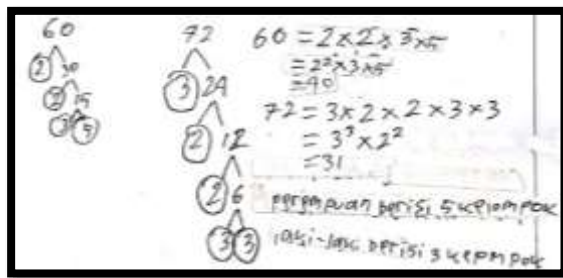 60
2 30
2 15
3 5
72
3 24
2 12
2 6
3 3
60 = 2 x 2 x 3 x 5
= 2² x 3 x 5
= 40
72 = 3 x 2 x 2 x 3 x 3
= 3³ x 2²
= 31
perempuan berisi 5 kelompok
laki-laki berisi 3 kelompok